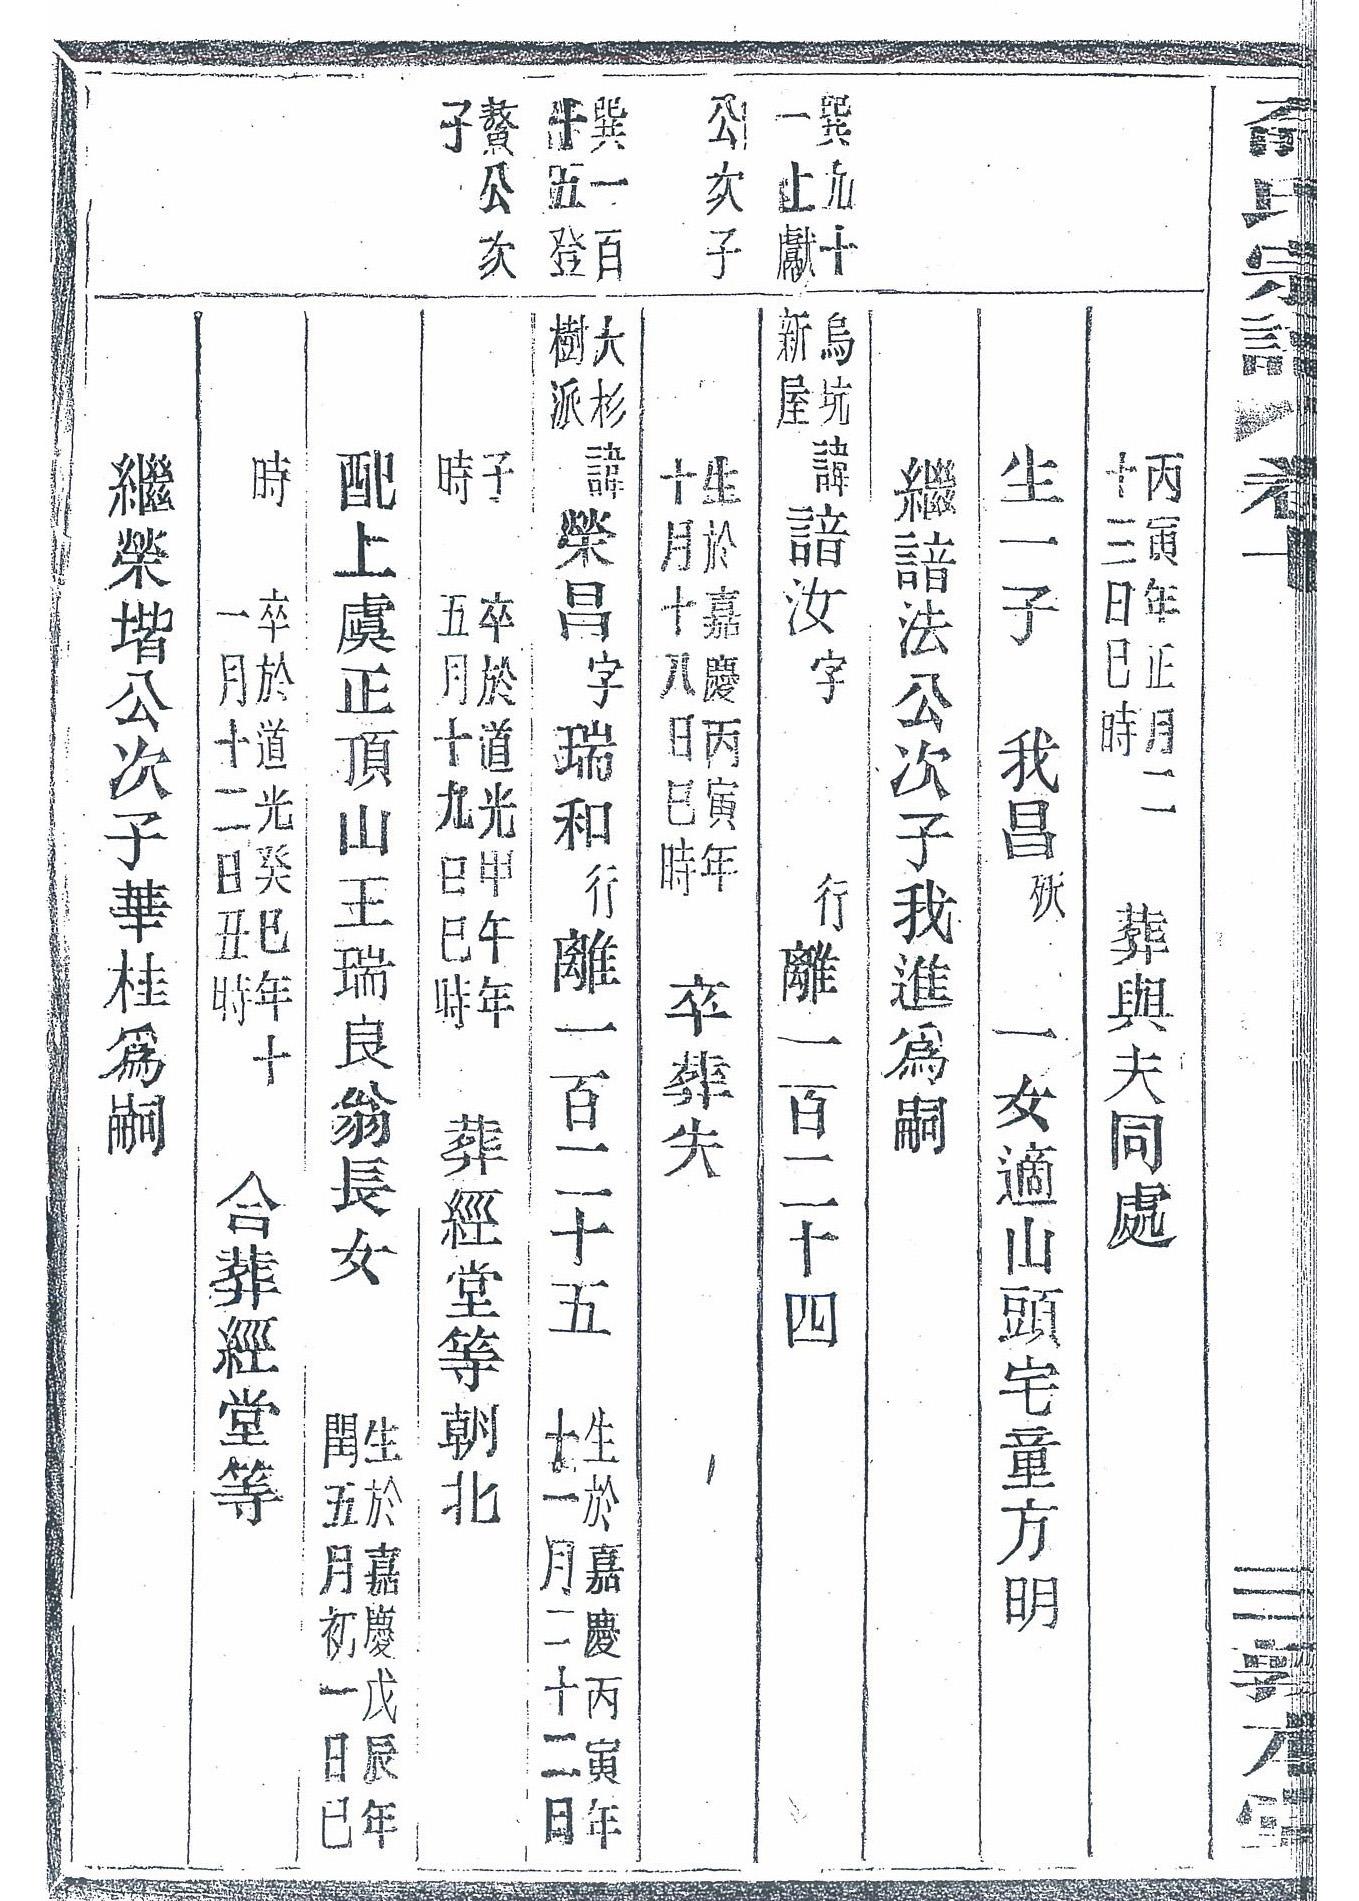 俞氏宗譜 卷十 三 敦本堂
丙寅年正月二
十三日巳時
葬與夫同處
生一子 我昌殀 一女適山頭宅童方明
繼諳法公次子我進爲嗣
巽九十
一止獻
公次子
烏坑
新屋
諱諳汝字 行離一百二十四
生於嘉慶丙寅年
十月十八日巳時
卒葬失
巽一百
十五登
鰲公次
子
大杉
樹派
諱榮昌字瑞和行離一百二十五
生於嘉慶丙寅年
十一月二十二日
子
時
卒於道光甲午年
五月十九日巳時
葬經堂等朝北
配上虞正頂山王瑞良翁長女
生於嘉慶戊辰年
閏五月初一日巳
時
卒於道光癸巳年十
一月十二日丑時
合葬經堂等
繼榮堦公次子華桂爲嗣